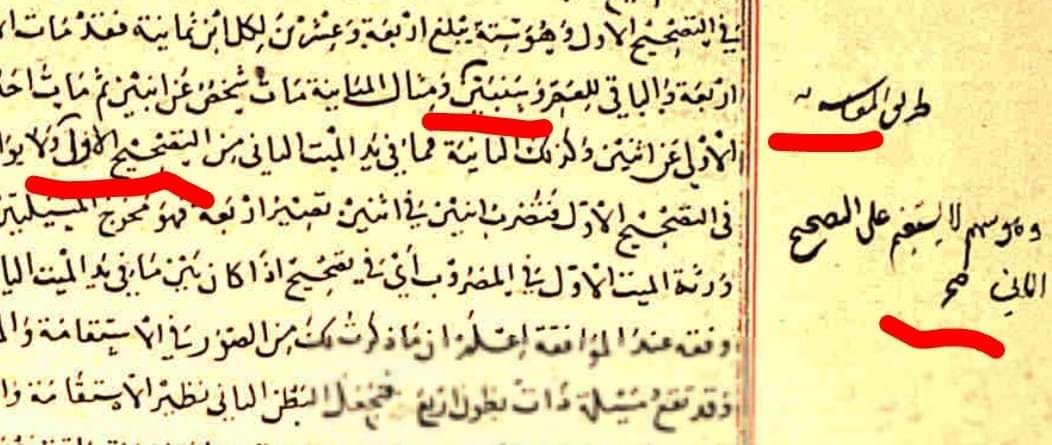 في التصحيح الاول وهو ستة يبلغ اربعة وعشرين لكل ابن ثمانية فقد مات
اربعة والباقي للعم وسنبين ومثال المباينة مات شخص عن ابنين ثم مات
الاول عن اثنين وكذلك الثانية فما في يد الميت الثاني من التصحيح الاول ولا
في التصحيح الاول فتضرب اثنين في اثنين تصير اربعة فهو مخرج المسئلتين
ورثة الميت الاول في المضروب أي في تصحيح اذا كان بين ما في يد الميت
وفقه عند الموافقة اعلم ان ما ذكرت لك من الصور في الاستقامة
وقد تقع مسئلة ذات بطون اربع فتجعل البطن الثاني نظير الاستقامة
وهو سهم لا يستقيم على التصحيح
الثاني صح